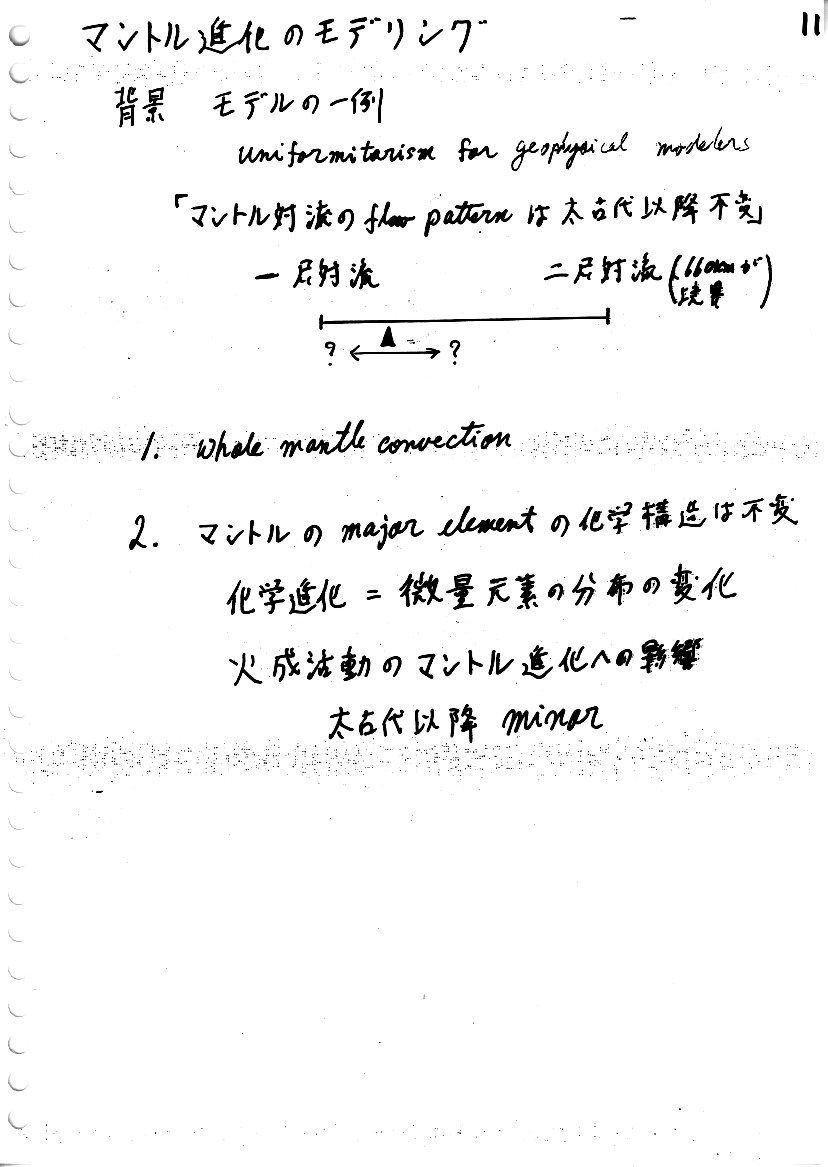 11
マントル進化のモデリング
背景 モデルの一例
Uniformitarism for geophysical modelers
「マントル対流の flow pattern は太古代以降不変」
一層対流 二層対流 (660kmが
境界)
? ?
1. Whole mantle convection
2. マントルの major element の化学構造は不変
化学進化 = 微量元素の分布の変化
火成活動のマントル進化への影響
太古代以降 minor